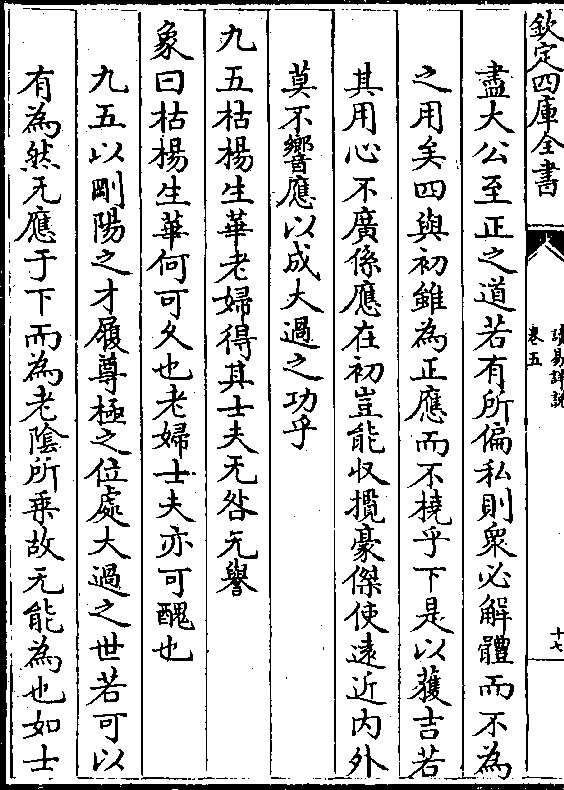 欽定四庫全書
讀易詳說
卷五
十七
盡大公至正之道若有所偏私則衆必解體而不為
之用矣四與初雖為正應而不橈乎下是以獲吉若
其用心不廣係應在初豈能收攬豪傑使遠近内外
莫不響應以成大過之功乎
九五枯楊生華老婦得其士夫无咎无譽
象曰枯楊生華何可久也老婦士夫亦可醜也
九五以剛陽之才履尊極之位處大過之世若可以
有為然无應于下而為老陰所乗故无能為也如士